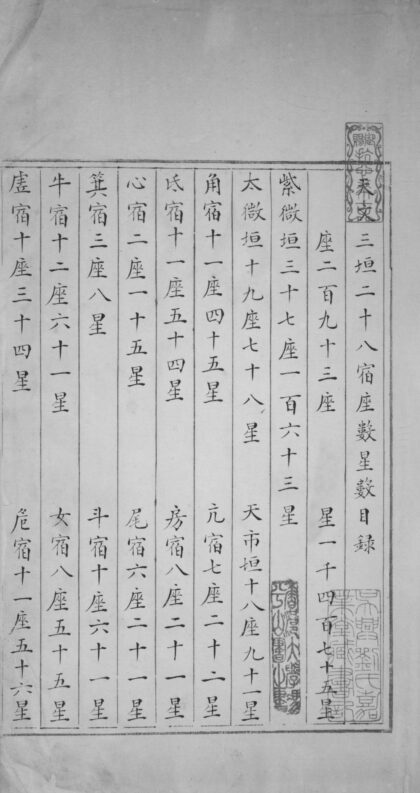 天文
三垣二十八宿座數星數目錄
座二百九十三座　星一千四百七十五星
紫微垣三十七座一百六十三星
太微垣十九座七十八星　天市垣十八座九十一星
角宿十一座四十五星　亢宿七座二十二星
氐宿十一座五十四星　房宿八座二十一星
心宿二座一十五星　尾宿六座二十一星
箕宿三座八星　斗宿十座六十一星
牛宿十二座六十一星　女宿八座五十五星
虛宿十座三十四星　危宿十一座五十六星
吳興劉氏嘉
業堂藏書印